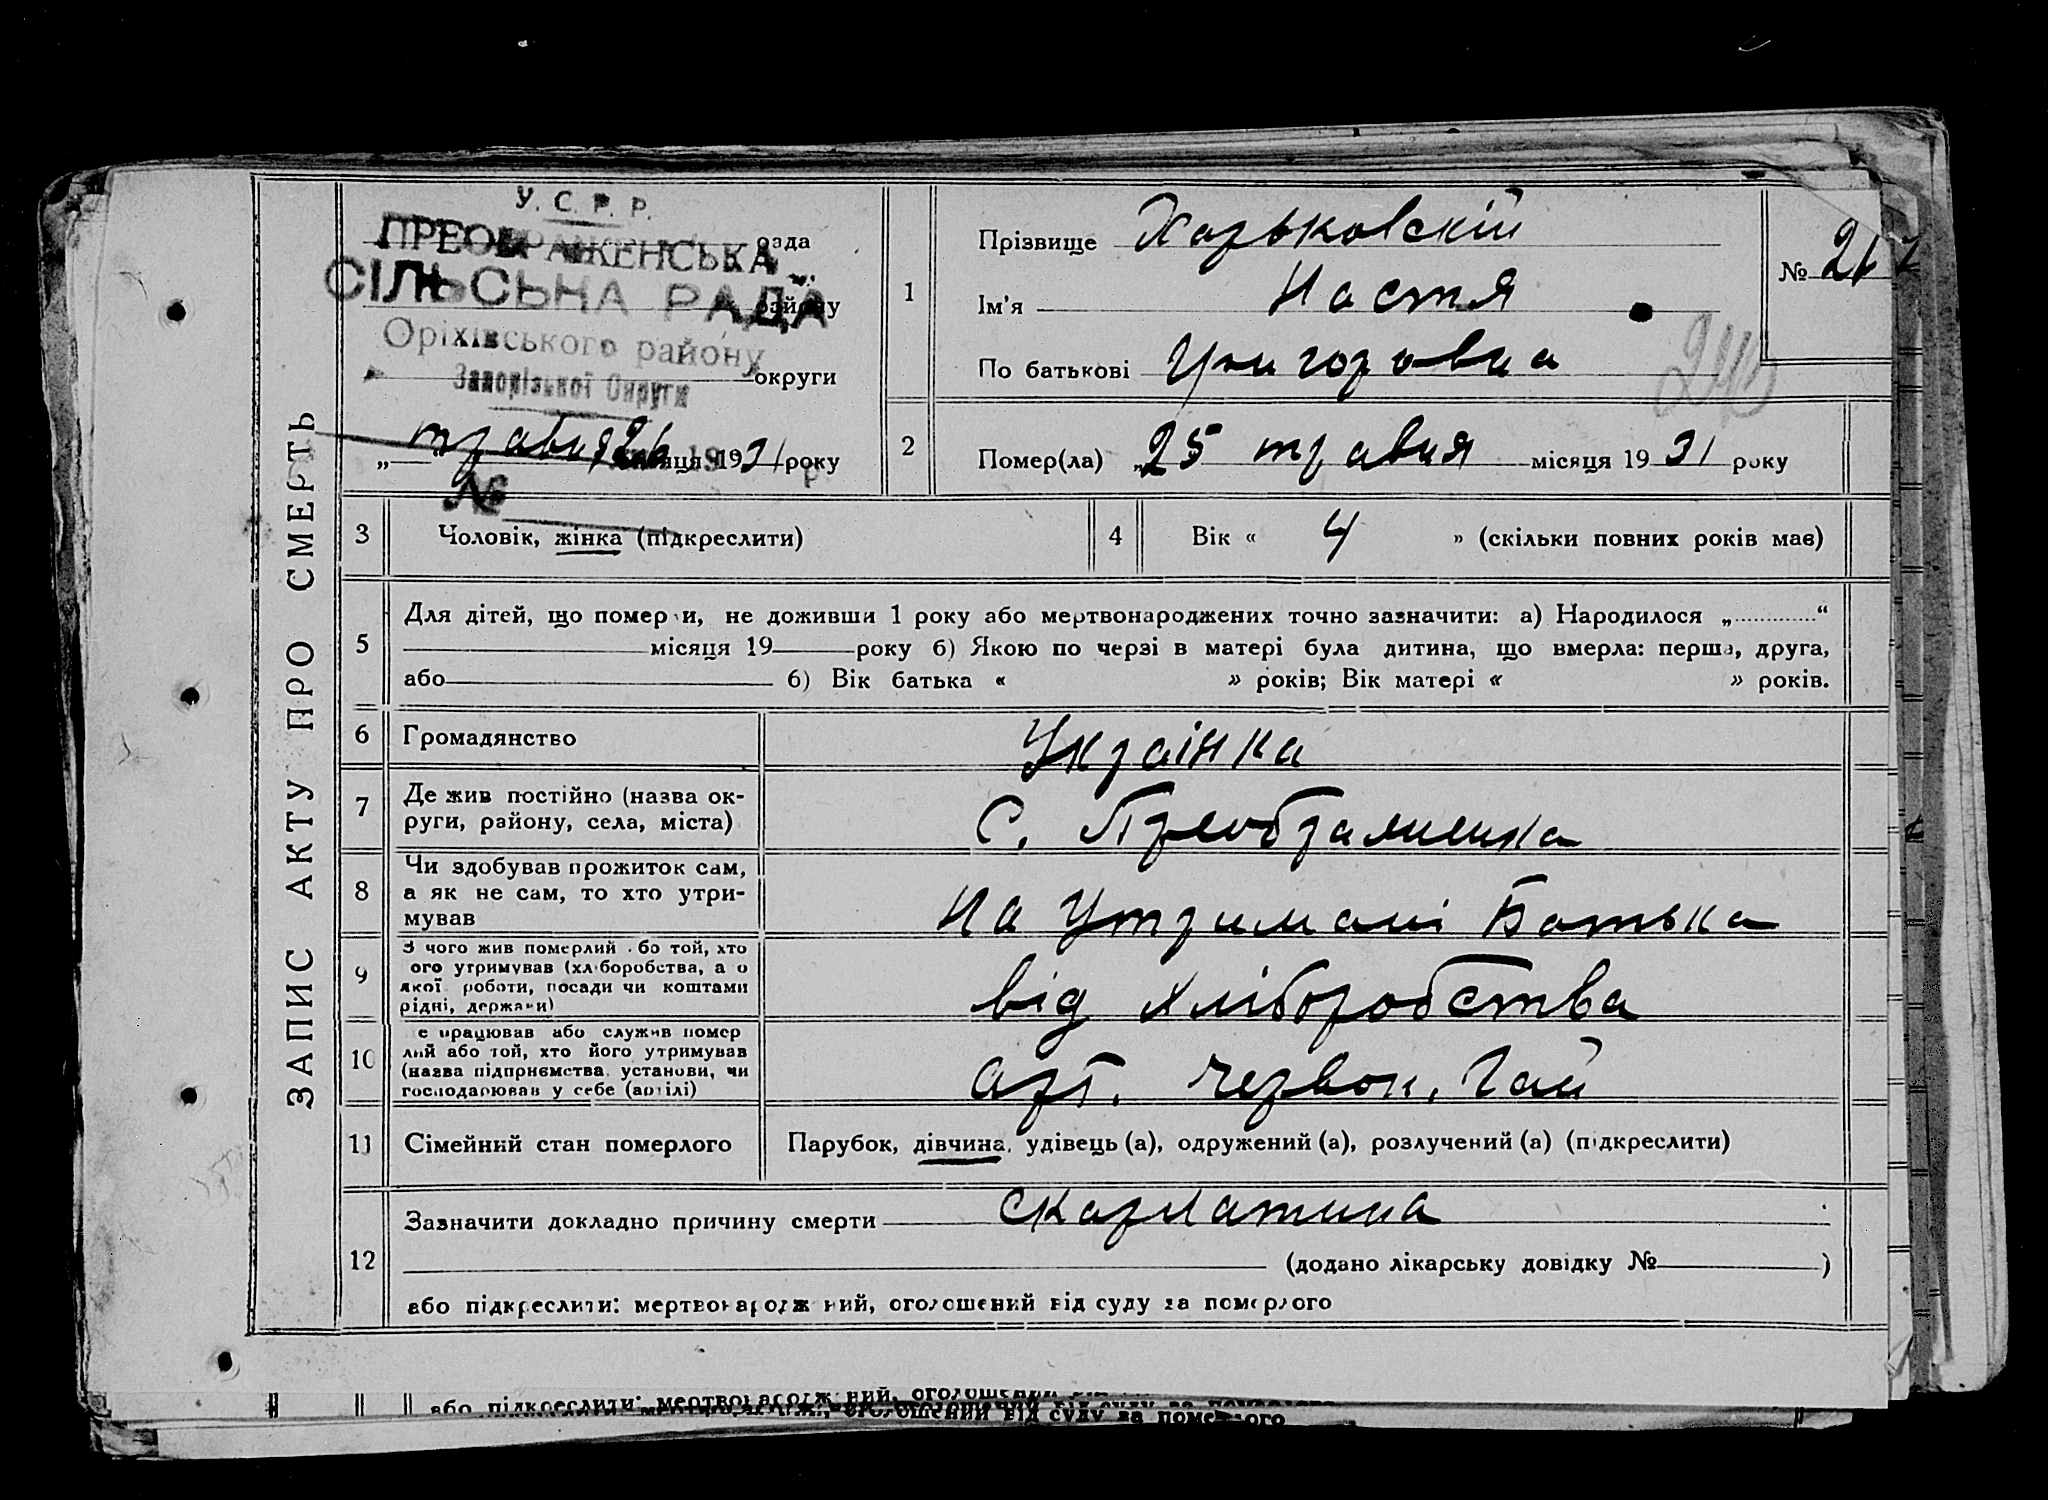 ЗАПИС АКТУ ПРО СМЕРТЬ
У. С. Р. Р.
ПРЕОБРАЖЕНСЬКА рада
СІЛЬСЬКА РАДА району
Оріхівського району
Запорізької Округи округи
травня 26 місяця 1931 року
№
1
Прізвище Харьковскій
Ім'я Настя
По батькові Григоровна
№ 21
2
Помер(ла) „25 травня місяця 1931 року
3
Чоловік, жінка (підкреслити)
4
Вік « 4 » (скільки повних років має)
5
Для дітей, що померли, не доживши 1 року або мертвонароджених точно зазначити: а) Народилося „ “
місяця 19 року б) Якою по черзі в матері була дитина, що вмерла: перша, друга,
або б) Вік батька « » років; Вік матері « » років.
6
Громадянство
Українка
7
Де жив постійно (назва ок-
руги, району, села, міста)
С. Преображенка
8
Чи здобував прожиток сам,
а як не сам, то хто утри-
мував
На Утримані Батька
9
З чого жив померлий або той, хто
ого утримував (хліборобства, а о
якої роботи, посади чи коштами
рідні, держави)
від хліборобства
10
е працював або служив помер
лий або той, хто його утримував
(назва підприємства, установи, чи
господарював у себе (артілі)
арт. червон. Гай
11
Сімейний стан померлого
Парубок, дівчина, удівець (а), одружений (а), розлучений (а) (підкреслити)
12
Зазначити докладно причину смерти скарлатина
(додано лікарську довідку № )
або підкреслити: мертвонароджений, оголошений від суду за померлого
або підкреслити: мертвонароджений, оголошений
оголошений від суду за померлого